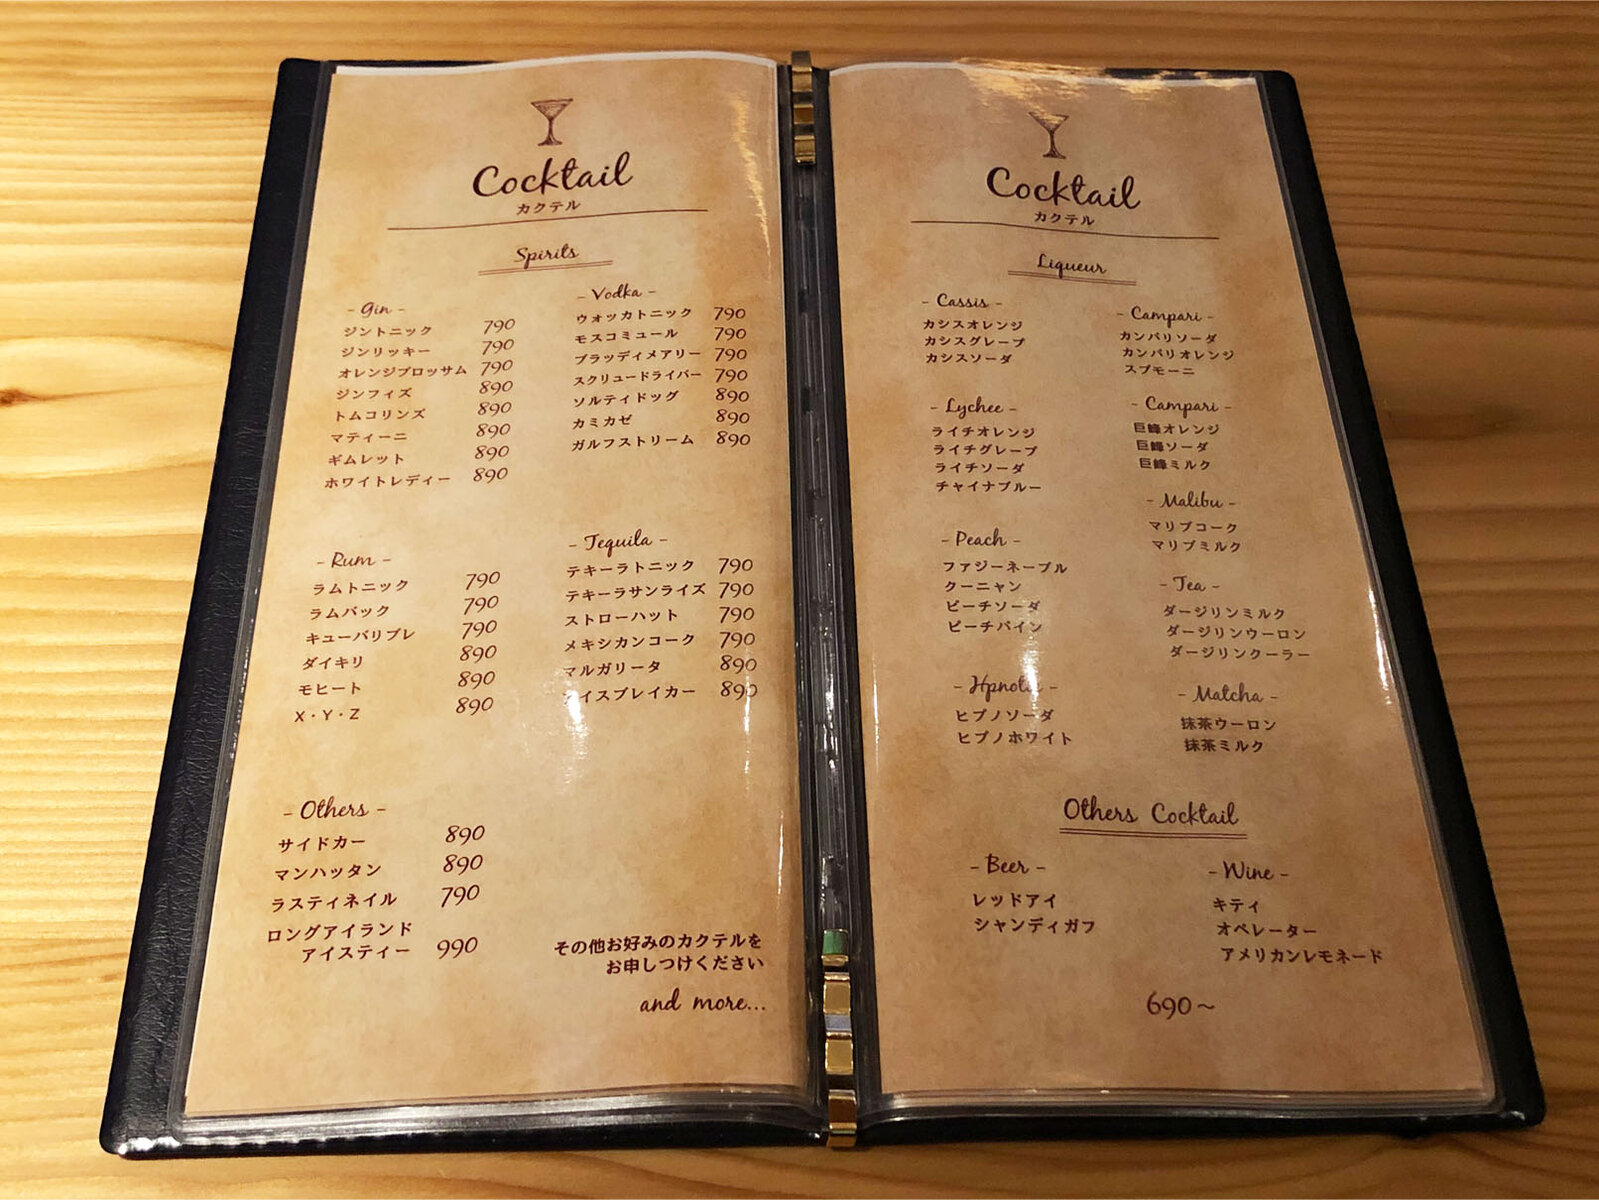 Cocktail
カクテル
Spirits
- Gin -
ジントニック 790
ジンリッキー 790
オレンジブロッサム 790
ジンフィズ 890
トムコリンズ 890
マティーニ 890
ギムレット 890
ホワイトレディー 890
- Vodka -
ウォッカトニック 790
モスコミュール 790
ブラッディメアリー 790
スクリュードライバー 790
ソルティドッグ 890
カミカゼ 890
ガルフストリーム 890
- Rum -
ラムトニック 790
ラムバック 790
キューバリブレ 790
ダイキリ 890
モヒート 890
X・Y・Z 890
- Tequila -
テキーラトニック 790
テキーラサンライズ 790
ストローハット 790
メキシカンコーク 790
マルガリータ 890
アイスブレイカー 890
- Others -
サイドカー 890
マンハッタン 890
ラスティネイル 790
ロングアイランド
アイスティー 990
その他お好みのカクテルを
お申しつけください
and more...
Cocktail
カクテル
Liqueur
- Cassis -
カシスオレンジ
カシスグレープ
カシスソーダ
- Campari -
カンパリソーダ
カンパリオレンジ
スプモーニ
- Lychee -
ライチオレンジ
ライチグレープ
ライチソーダ
チャイナブルー
- Campari -
巨峰オレンジ
巨峰ソーダ
巨峰ミルク
- Malibu -
マリブコーク
マリブミルク
- Peach -
ファジーネーブル
クーニャン
ピーチソーダ
ピーチパイン
- Tea -
ダージリンミルク
ダージリンウーロン
ダージリンクーラー
- Hpnotic -
ヒプノソーダ
ヒプノホワイト
- Matcha -
抹茶ウーロン
抹茶ミルク
Others Cocktail
- Beer -
レッドアイ
シャンディガフ
- Wine -
キティ
オペレーター
アメリカンレモネード
690～